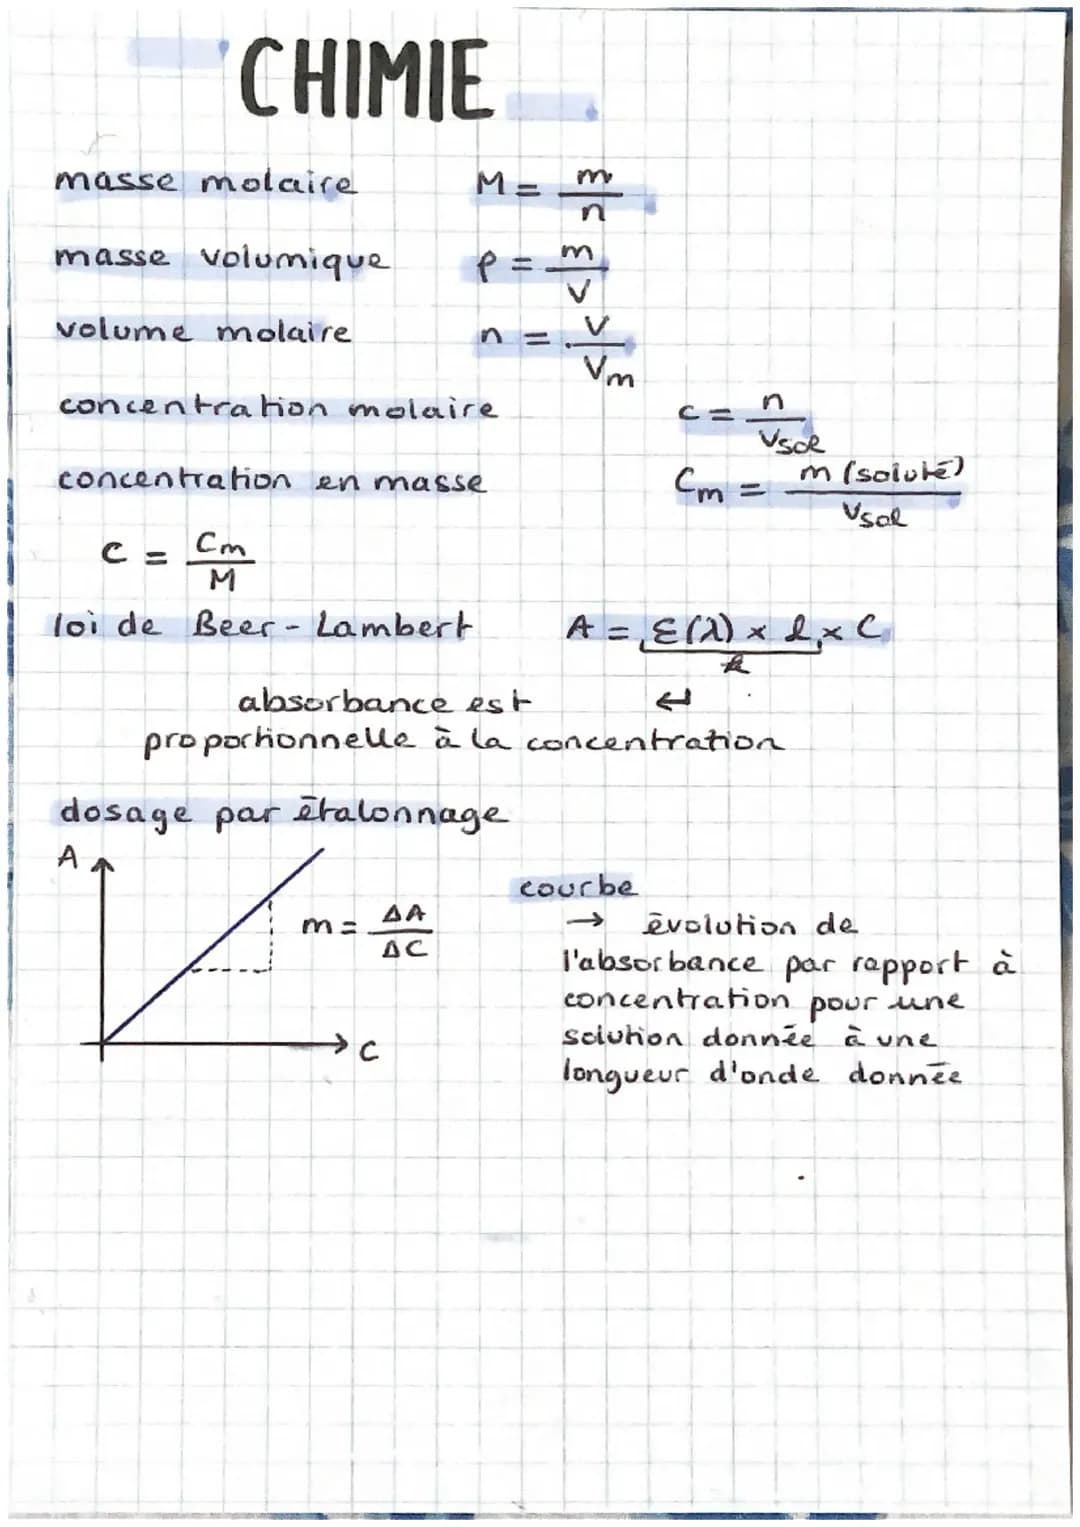 CHIMIE
masse molaire M = m/n
masse volumique ρ = m/V
volume molaire n = V/Vm
concentration molaire c = n/Vsol
concentration en masse Cm = m (soluté)/Vsol
C = Cm/M
loi de Beer-Lambert A = ε(λ) × l × C
k
absorbance est ↵
proportionnelle à la concentration
dosage par étalonnage
A
m = ΔA/ΔC
C
courbe
→ évolution de
l'absorbance par rapport à
concentration pour une
solution donnée à une
longueur d'onde donnée